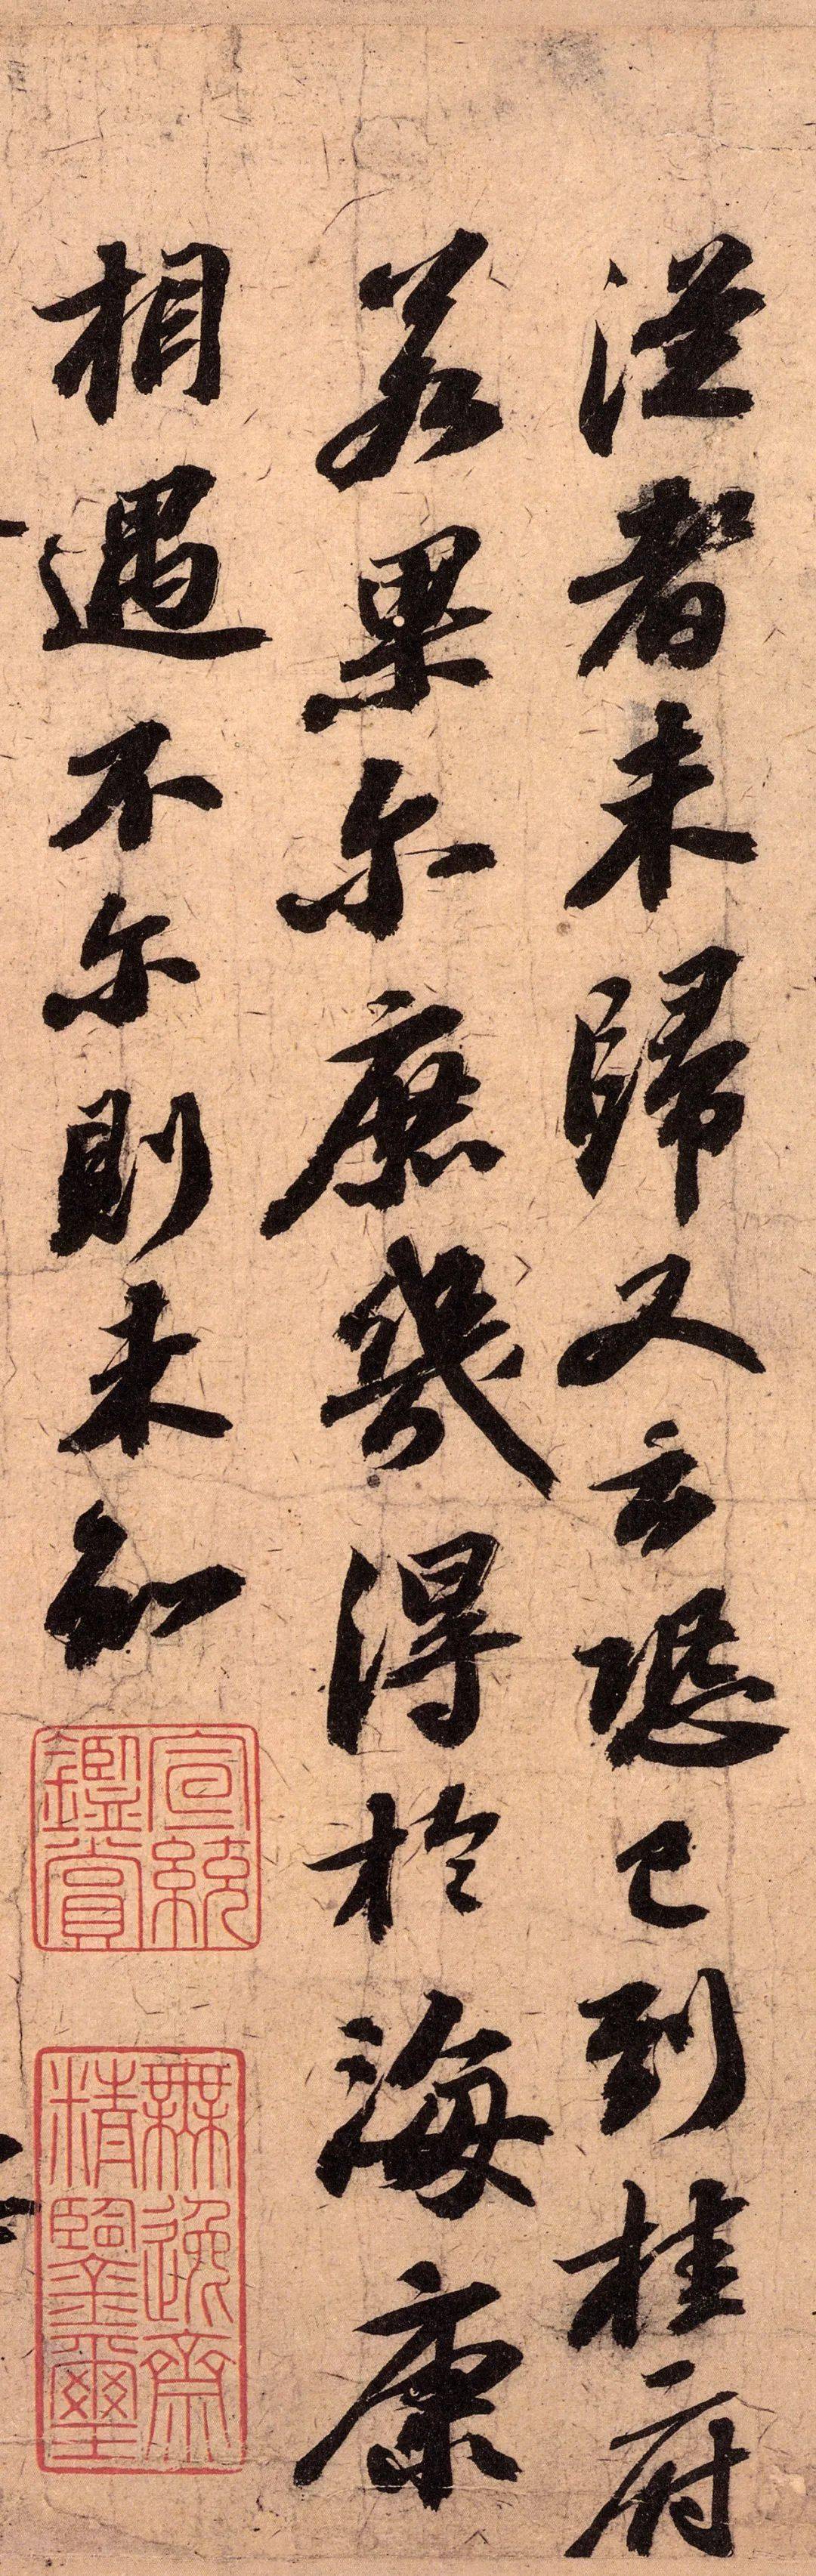 從者未歸又云恐已到桂府
若果尔庶幾得於海康
相遇不尔則未知
宣統鑑賞
無逸齋精鑒璽